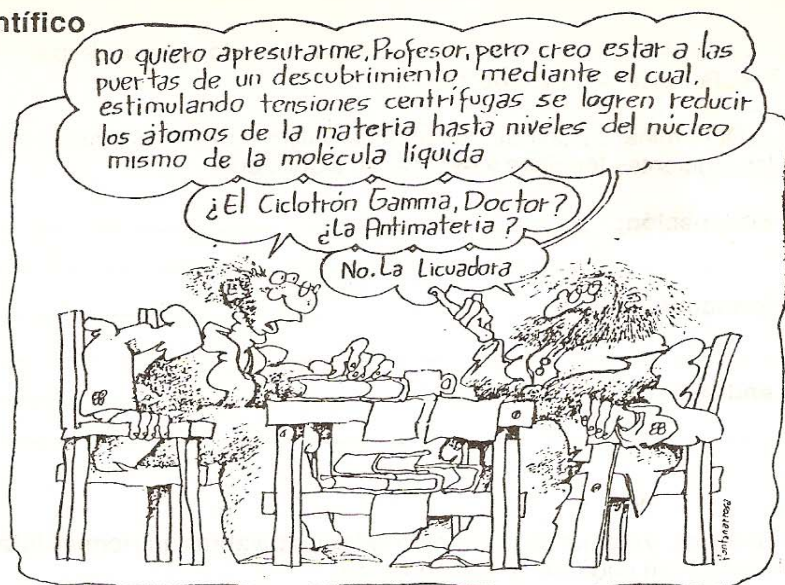 ntífico
no quiero apresurarme, Profesor, pero creo estar a las
puertas de un descubrimiento mediante el cual,
estimulando tensiones centrífugas se logren reducir
los átomos de la materia hasta niveles del núcleo
mismo de la molécula líquida
¿El Ciclotrón Gamma, Doctor?
¿La Antimateria?
No. La Licuadora